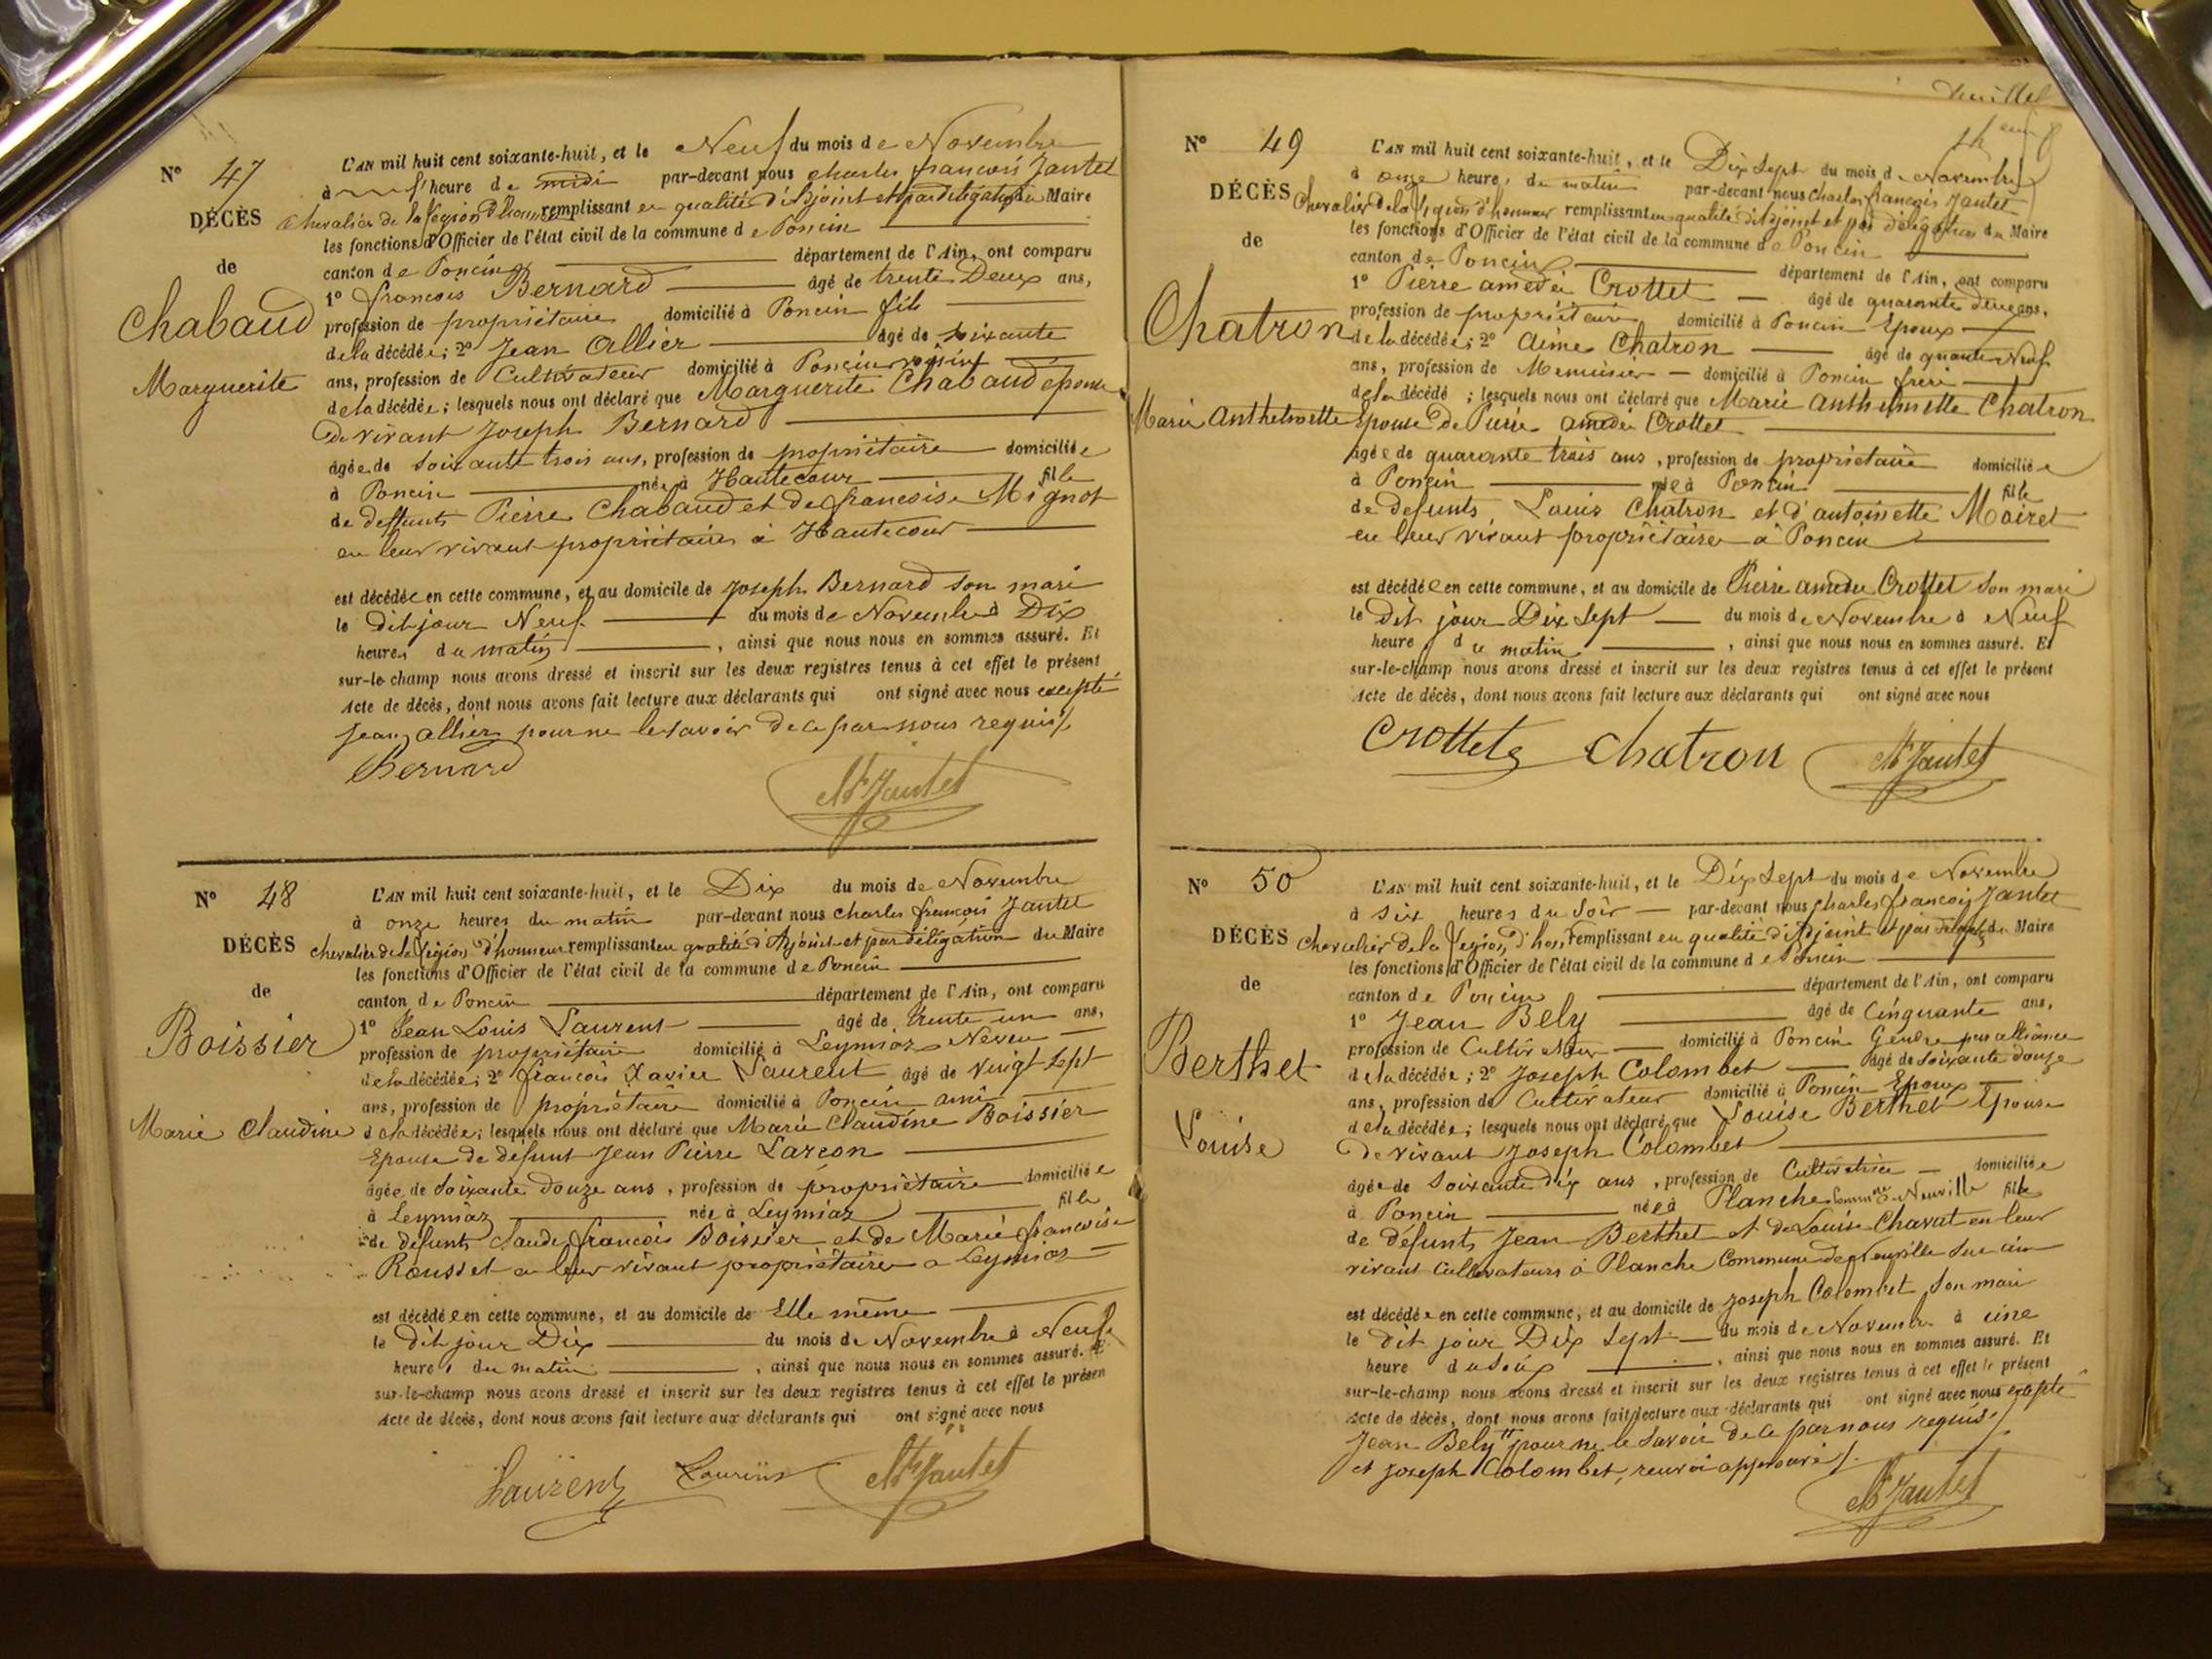 N° 47
DÉCÈS
de
Chabaud
Marguerite
L'AN mil huit cent soixante-huit, et le Neuf du mois de Novembre
à heure de midi par-devant nous charles françois Jantet
chevalier de la légion d'honneur remplissant en qualité d'Adjoint et par délégation du Maire
les fonctions d'Officier de l'état civil de la commune de Poncin
canton de Poncin département de l'Ain, ont comparu
1° françois Bernard âgé de trente Deux ans,
profession de propriétaire domicilié à Poncin fils
de la décédée; 2° Jean Allier âgé de soixante
ans, profession de Cultivateur domicilié à Poncin voisin
de la décédée; lesquels nous ont déclaré que Marguerite Chabaud épouse
de vivant Joseph Bernard
âgée de soixante trois ans, profession de propriétaire domiciliée
à Poncin née à Hautecour fille
de deffunts Pierre Chabaud et de françoise Mignot
en leur vivant propriétaires à Hautecour
est décédée en cette commune, et au domicile de Joseph Bernard son mari
le dit jour Neuf du mois de Novembre à Dix
heures du matin, ainsi que nous nous en sommes assuré. Et
sur-le-champ nous avons dressé et inscrit sur les deux registres tenus à cet effet le présent
Acte de décès, dont nous avons fait lecture aux déclarants qui ont signé avec nous excepté
Jean Allier pour ne le savoir de ce par nous requis
Bernard
Ch Jantet
N° 48
DÉCÈS
de
Boissier
Marie Claudine
L'AN mil huit cent soixante-huit, et le Dix du mois de Novembre
à onze heures du matin par-devant nous charles françois Jantet
chevalier de la légion d'honneur remplissant en qualité d'Adjoint et par délégation du Maire
les fonctions d'Officier de l'état civil de la commune de Poncin
canton de Poncin département de l'Ain, ont comparu
1° Jean Louis Laurent âgé de trente un ans,
profession de propriétaire domicilié à Leymiaz Neveu
de la décédée; 2° françois Xavier Laurent âgé de vingt sept
ans, profession de propriétaire domicilié à Poncin ami
de la décédée; lesquels nous ont déclaré que Marie Claudine Boissier
Epouse de defunt Jean Pierre Larçon
âgée de soixante douze ans, profession de propriétaire domiciliée
à Leymiaz née à Leymiaz fille
de défunts Claude françois Boissier et de Marie françoise
Rousset en leur vivant propriétaires a Leymiaz
est décédée en cette commune, et au domicile de Elle même
le dit jour Dix du mois de Novembre à Neuf
heures du matin, ainsi que nous nous en sommes assuré. Et
sur-le-champ nous avons dressé et inscrit sur les deux registres tenus à cet effet le présen
Acte de décès, dont nous avons fait lecture aux déclarants qui ont signé avec nous
Laurent Laurent Ch Jantet
feuillet
N° 49
DÉCÈS
de
Chatron
Marie Anthelmette
L'AN mil huit cent soixante-huit, et le Dix Sept du mois de Novembre
à onze heures du matin par-devant nous Charles françois Jantet
Chevalier de la légion d'honneur remplissant en qualité d'Adjoint et par délégation du Maire
les fonctions d'Officier de l'état civil de la commune de Poncin
canton de Poncin département de l'Ain, ont comparu
1° Pierre amédée Crottet âgé de quarante deux ans,
profession de propriétaire domicilié à Poncin Epoux
de la décédée; 2° Aimé Chatron âgé de quarante Neuf
ans, profession de Menuisier domicilié à Poncin frère
de la décédé; lesquels nous ont déclaré que Marie anthelmette Chatron
Epouse de Pierre amédée Crottet
âgée de quarante trois ans, profession de propriétaire domiciliée
à Poncin née à Poncin fille
de defunts Louis Chatron et d'antoinette Moiret
en leur vivant propriétaires à Poncin
est décédée en cette commune, et au domicile de Pierre amédée Crottet son mari
le dit jour Dix Sept du mois de Novembre à Neuf
heures du matin, ainsi que nous nous en sommes assuré. Et
sur-le-champ nous avons dressé et inscrit sur les deux registres tenus à cet effet le présent
Acte de décès, dont nous avons fait lecture aux déclarants qui ont signé avec nous
Crottet Chatron Ch Jantet
N° 50
DÉCÈS
de
Berthet
Louise
L'AN mil huit cent soixante-huit, et le Dix Sept du mois de Novembre
à six heures du Soir par-devant nous Charles françois Jantet
Chevalier de la légion d'hon remplissant en qualité d'Adjoint et par délégation du Maire
les fonctions d'Officier de l'état civil de la commune de Poncin
canton de Poncin département de l'Ain, ont comparu
1° Jean Bely âgé de Cinquante ans,
profession de Cultivateur domicilié à Poncin Gendre par alliance
de la décédée; 2° Joseph Colombet âgé de soixante douze
ans, profession de Cultivateur domicilié à Poncin Epoux
de la décédée; lesquels nous ont déclaré que Louise Berthet Epouse
de vivant Joseph Colombet
âgée de soixante dix ans, profession de Cultivatrice domiciliée
à Poncin née à Planche Commune Neuville fille
de défunts Jean Berthet et de Louise Chavat en leur
vivant Cultivateurs à Planche Commune de Neuville sur ain
est décédée en cette commune, et au domicile de Joseph Colombet son mari
le dit jour Dix Sept du mois de Novembre à une
heure du soir, ainsi que nous nous en sommes assuré. Et
sur-le-champ nous avons dressé et inscrit sur les deux registres tenus à cet effet le présent
Acte de décès, dont nous avons fait lecture aux déclarants qui ont signé avec nous excepté
Jean Bely pour ne le savoir de ce par nous requis
et Joseph Colombet, renvoi approuvé
Ch Jantet